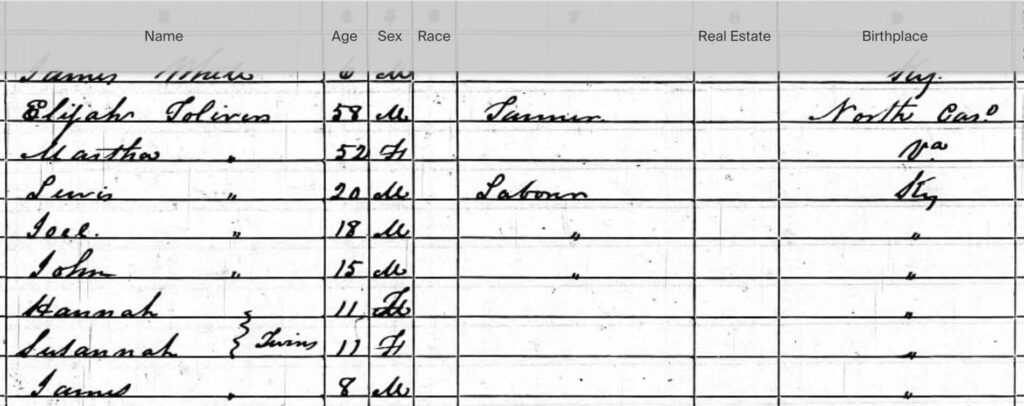 2 4 5 6 7 8 9
Name Age Sex Race Real Estate Birthplace
James White 6 M Ky.
Elijah Toliver 58 M North Caro
Martha " 52 F Va
Lewis " 20 M Labour Ky
Joel. " 18 M " "
John " 15 M " "
Hannah 11 F "
Susannah } Twins 11 F "
James " 8 M "